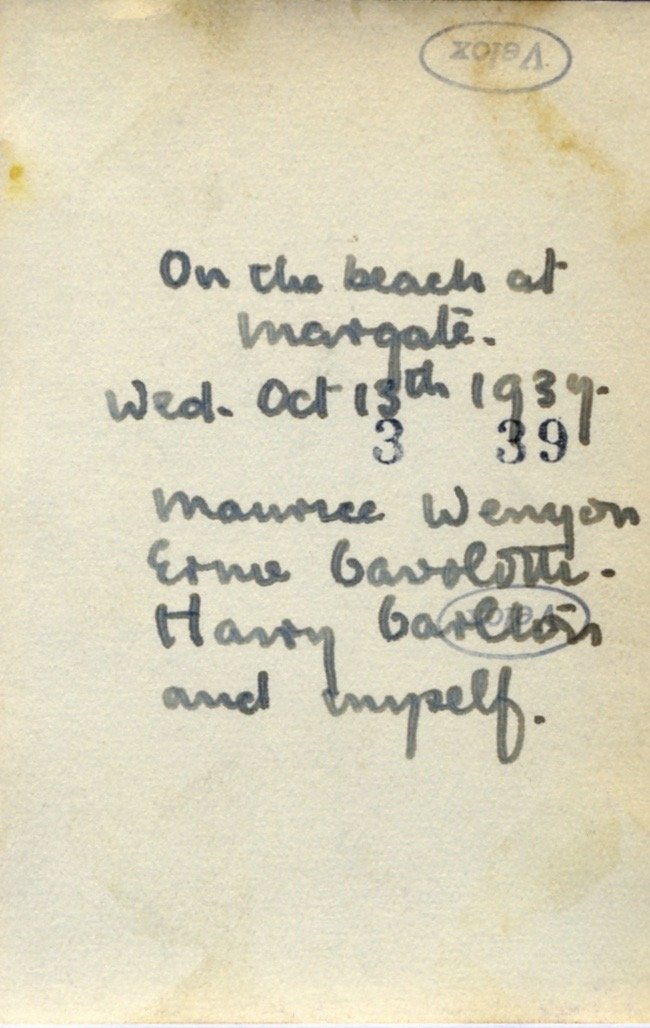 Velox
On the beach at
Margate.
Wed. Oct 13th 1937.
3 39
Maurice Wenyon
Ernie
Harry Carlton
Velox
and myself.